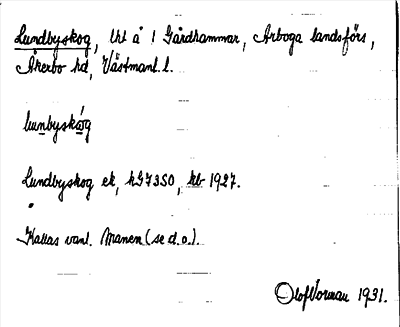 Lundbyskog, lht å 1 Gårdhammar, Arboga landsförs,
Åkerbo hd, Västmanl. l.
lunbyskóg
Lundbyskog ek, hG7350, kb 1927.
Kallas vanl. Manen (se d.o.).
Olof Norman 1931.